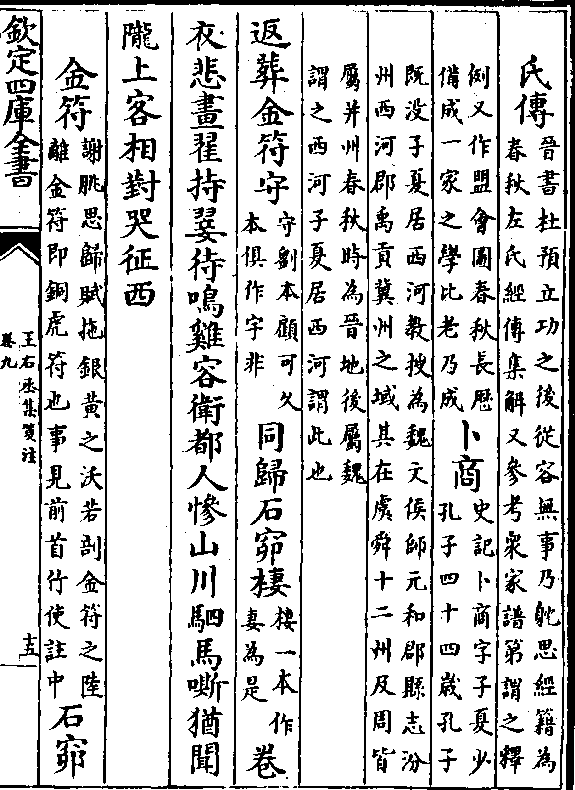 氏傳
晉書杜預立功之後從容無事乃躭思經籍為
春秋左氏經傳集解又參考衆家譜第謂之釋
例又作盟會圖春秋長歷
備成一家之學比老乃成
卜商
史記卜商字子夏少
孔子四十四歲孔子
既没子夏居西河教授為魏文侯師元和郡縣志汾
州西河郡禹貢冀州之域其在虞舜十二州及周皆
屬并州春秋時為晉地後屬魏
謂之西河子夏居西河謂此也
返葬金符守
守劉本顧可久
本俱作字非
同歸石窌棲
棲一本作
妻為是
卷
衣悲畫翟持翣待鳴雞容衛都人慘山川駟馬嘶猶聞
隴上客相對哭征西
金符
謝朓思歸賦拖銀黄之沃若剖金符之陸
離金符即銅虎符也事見前首竹使註中
石窌
欽定四庫全書
王右丞集箋注
卷九
十五